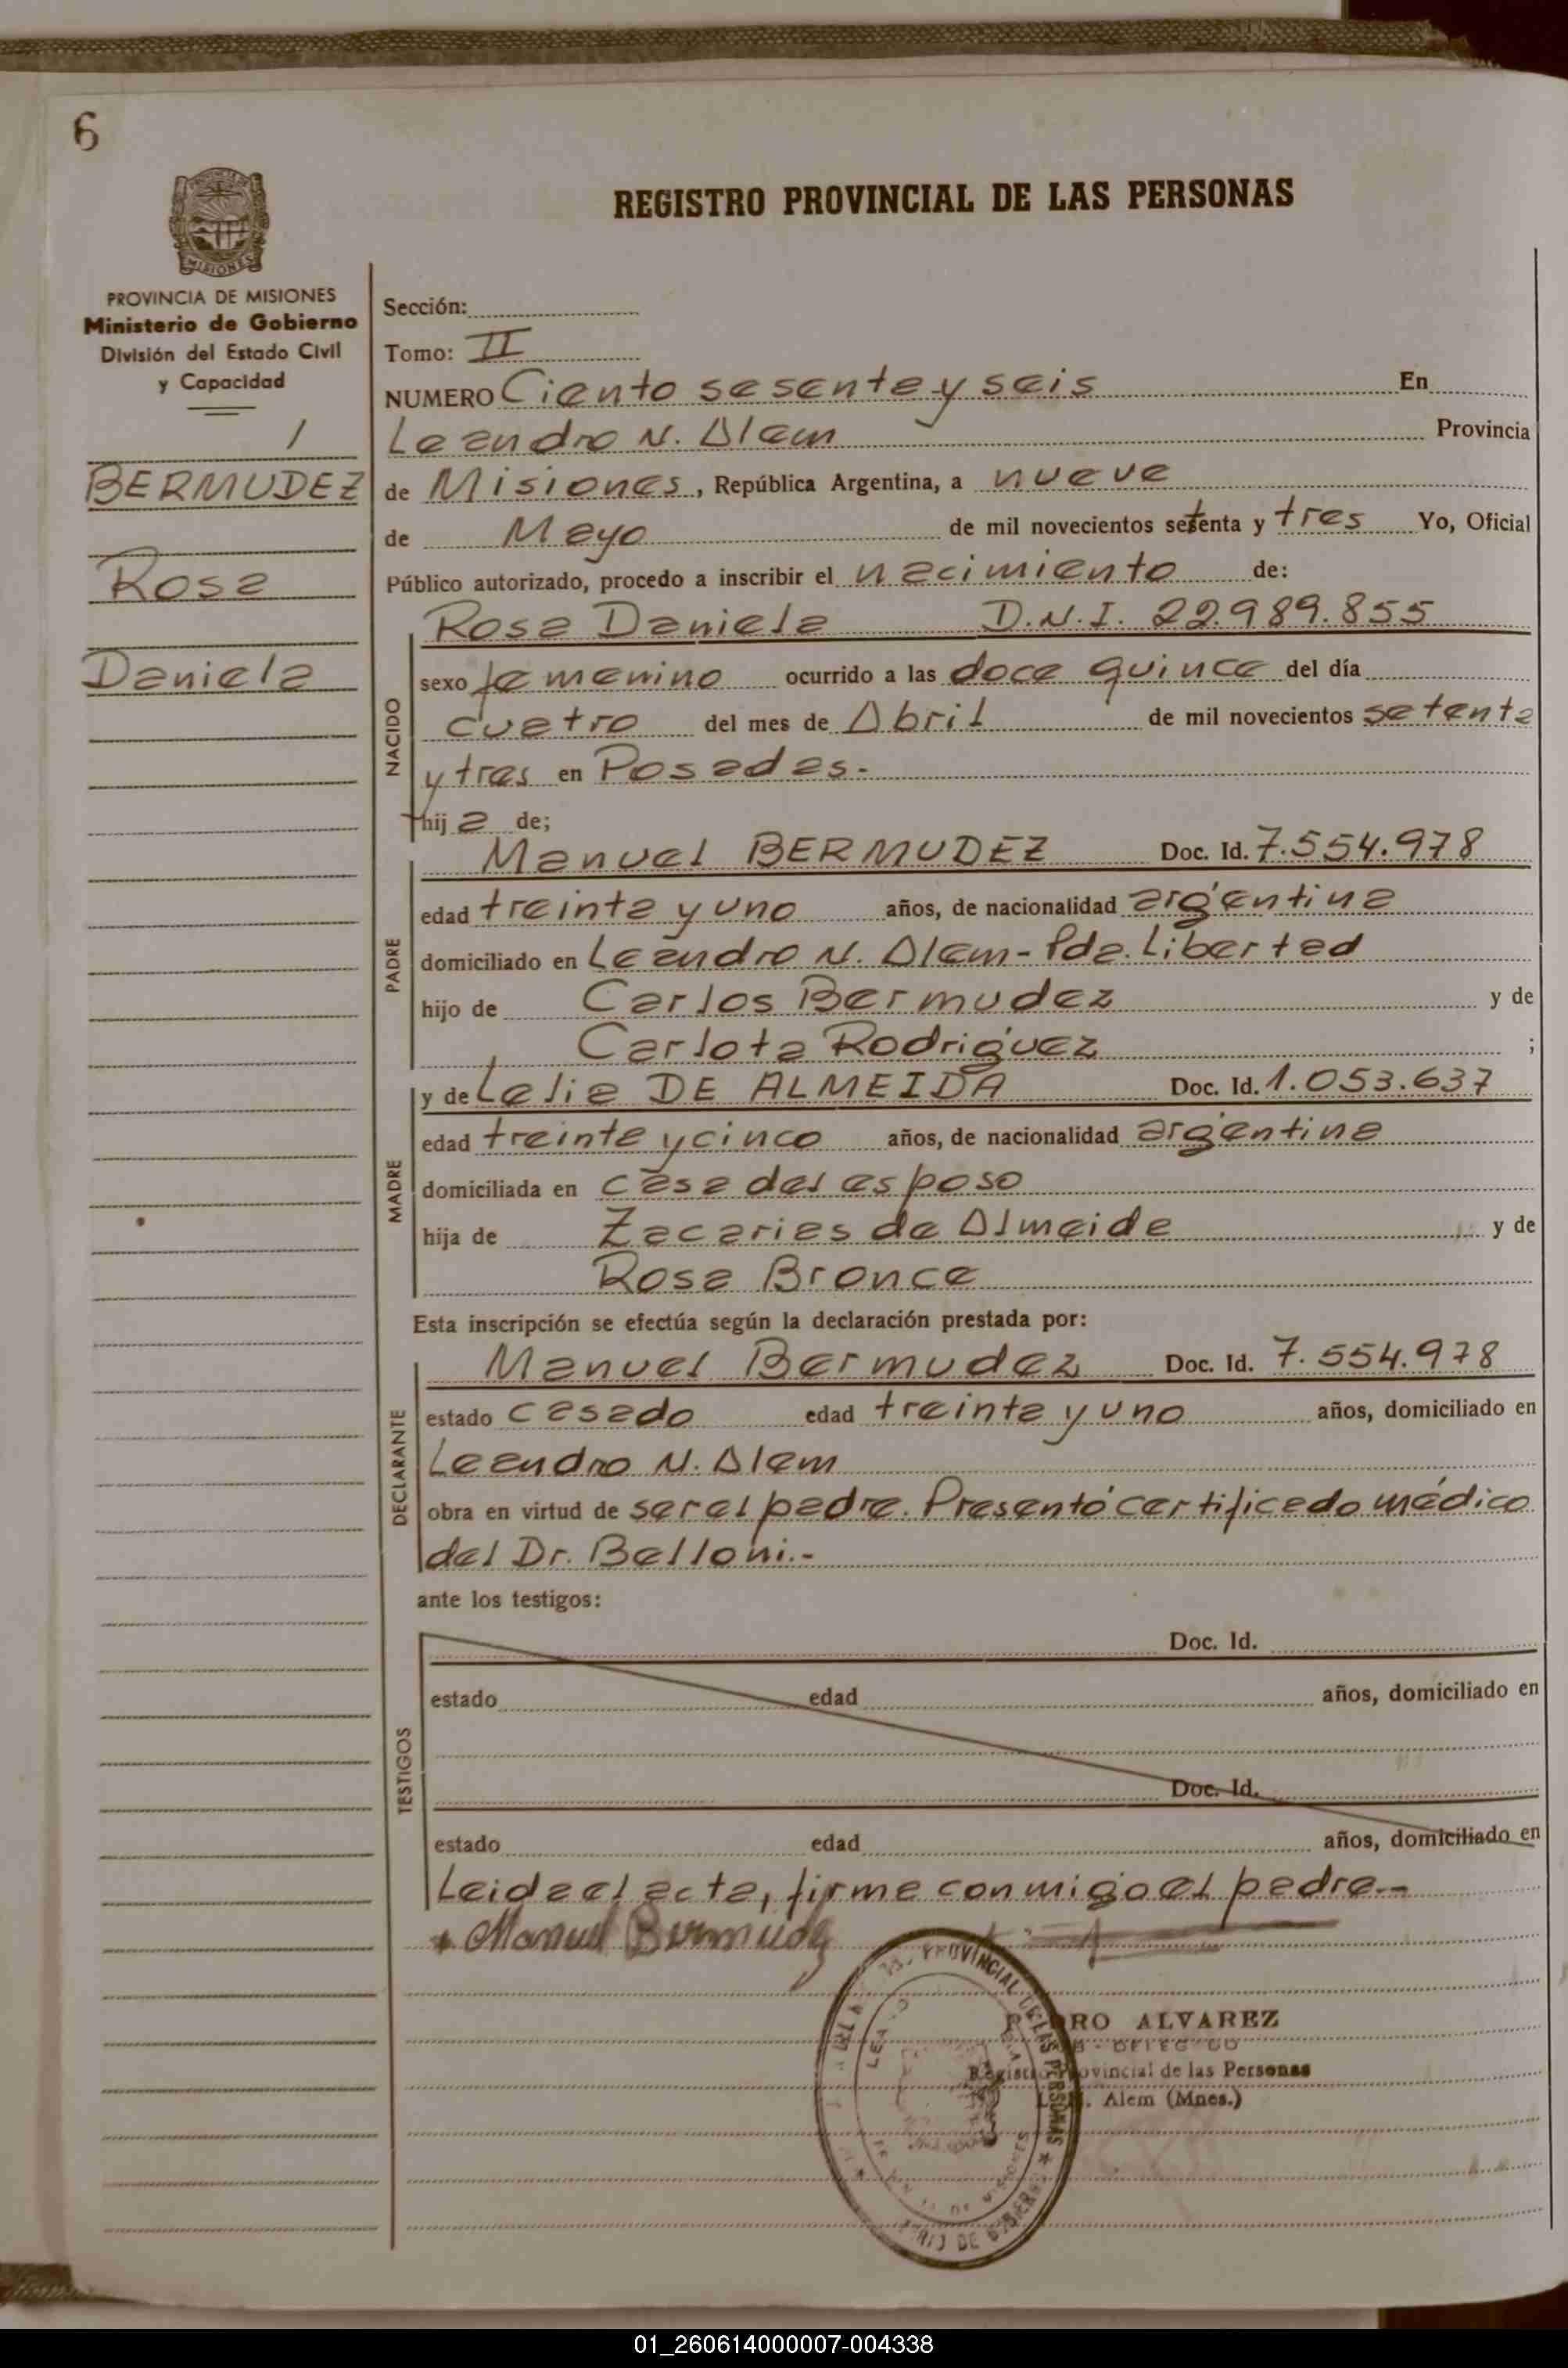 6
REGISTRO PROVINCIAL DE LAS PERSONAS
MISIONES
PROVINCIA DE MISIONES
Ministerio de Gobierno
División del Estado Civil
y Capacidad
BERMUDEZ
Rosa
Daniela
Sección:
Tomo: II
NUMERO Ciento sesenta y seis En
Leandro N. Alem Provincia
de Misiones, República Argentina, a nueve
de Mayo de mil novecientos setenta y tres Yo, Oficial
Público autorizado, procedo a inscribir el nacimiento de:
Rosa Daniela D.N.I. 22.989.855
NACIDO
sexo femenino ocurrido a las doce quince del día
cuatro del mes de Abril de mil novecientos setenta
y tres en Posadas.-
hija de;
PADRE
Manuel BERMUDEZ Doc. Id. 7.554.978
edad treinta y uno años, de nacionalidad argentina
domiciliado en Leandro N. Alem - Pda. Libertad
hijo de Carlos Bermudez y de
Carlota Rodriguez ;
MADRE
y de Lelia DE ALMEIDA Doc. Id. 1.053.637
edad treinta y cinco años, de nacionalidad argentina
domiciliada en casa del esposo
hija de Zacarias de Almeida y de
Rosa Bronce
Esta inscripción se efectúa según la declaración prestada por:
DECLARANTE
Manuel Bermudez Doc. Id. 7.554.978
estado casado edad treinta y uno años, domiciliado en
Leandro N. Alem
obra en virtud de ser el padre. Presentó certificado médico
del Dr. Belloni.-
ante los testigos:
TESTIGOS
Doc. Id.
estado edad años, domiciliado en
Doc. Id.
estado edad años, domiciliado en
Leida el acta, firma conmigo el padre.-
Manuel Bermudez
PROVINCIAL DE LAS PERSONAS
ALVAREZ
Registro Provincial de las Personas
Alem (Mnes.)
01_260614000007-004338